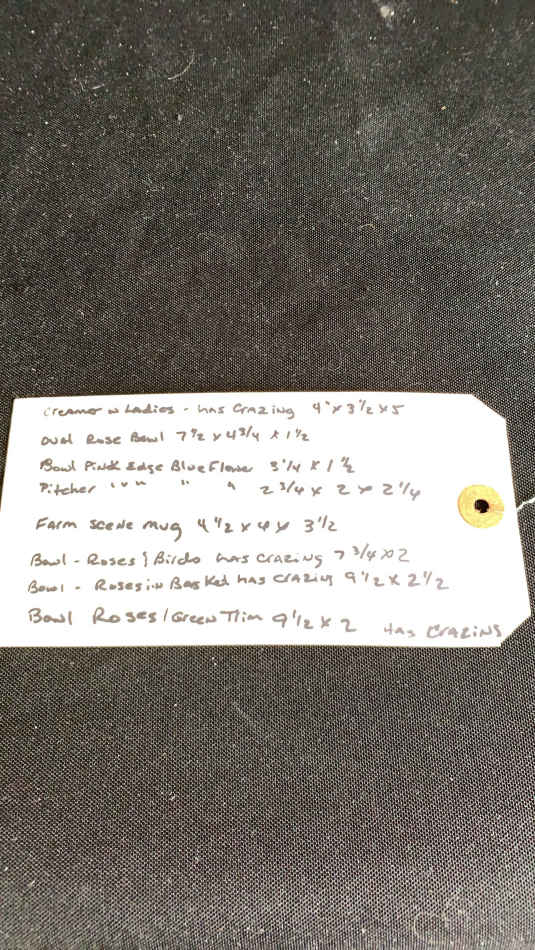 Creamer w Ladies - has Crazing 4" x 3 1/2 x 5
Oval Rose Bowl 7 1/2 x 4 3/4 x 1 1/2
Bowl Pink Edge Blue Flower 3 1/4 x 1 1/2
Pitcher " " " " " 2 3/4 x 2 x 2 1/4
Farm Scene mug 4 1/2 x 4 x 3 1/2
Bowl - Roses & Birds has crazing 7 3/4 x 2
Bowl - Roses in Basket has crazing 9 1/2 x 2 1/2
Bowl Roses / Green Trim 9 1/2 x 2 Has Crazing